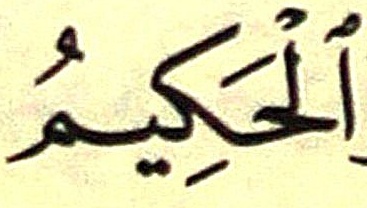 ٱلْحَكِيمُ